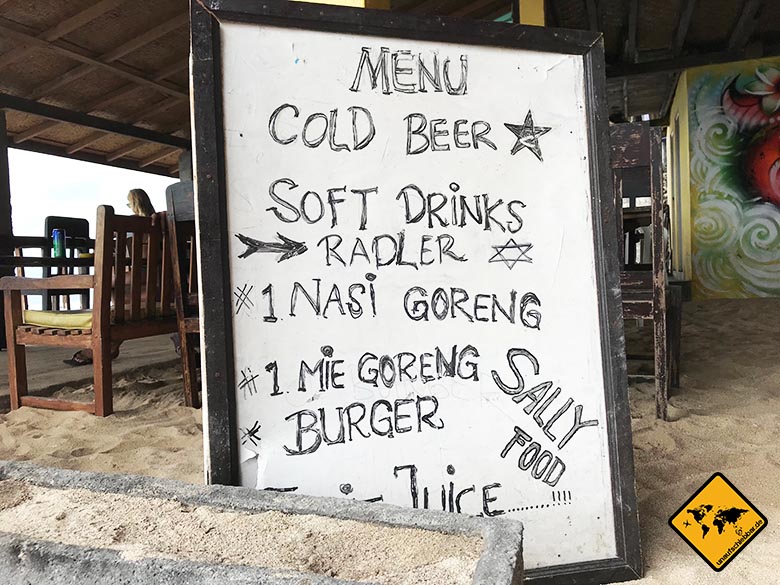 MENU
COLD BEER
SOFT DRINKS
RADLER
#1 NASI GORENG
#1 MIE GORENG
BURGER
SALLY
FOOD
JUICE.........!!!!
unaufschiebbar.de